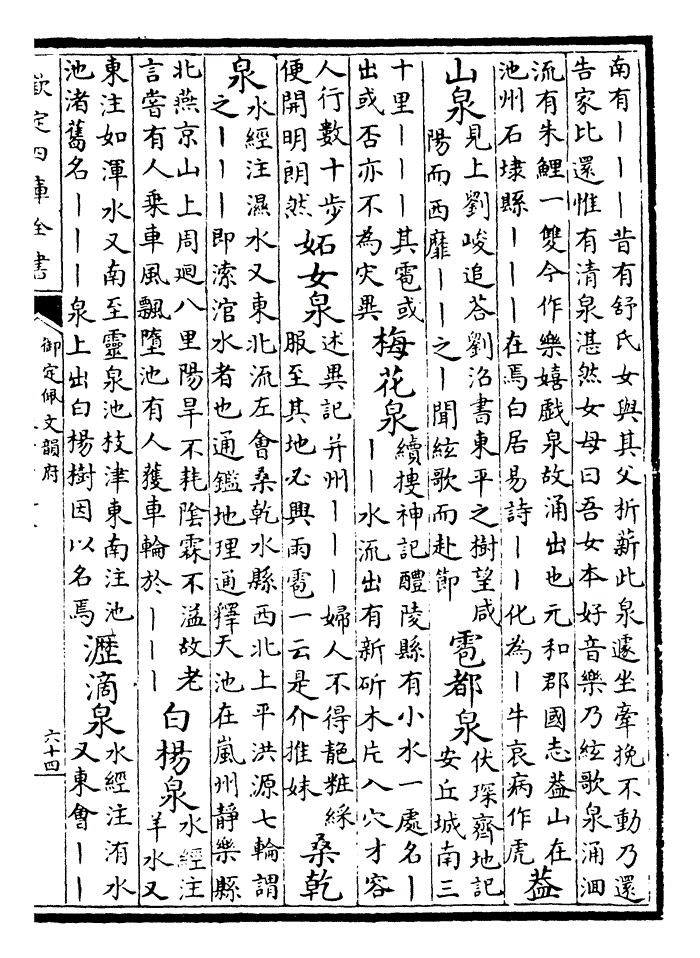 南有丨丨丨昔有舒氏女與其父折薪此泉遽坐牽挽不動乃還
告家比還惟有清泉湛然女母曰吾女本好音樂乃絃歌泉涌洄
流有朱鯉一雙今作樂嬉戲泉故涌出也元和郡國志葢山在
池州石埭縣丨丨丨在焉白居易詩丨丨化為丨牛哀病作虎
葢
山泉
見上劉峻追荅劉沼書東平之樹望咸
陽而西靡丨丨之丨聞絃歌而赴節
雹都泉
伏琛齊地記
安丘城南三
十里丨丨丨其雹或
出或否亦不為灾異
梅花泉
續搜神記醴陵縣有小水一處名丨
丨丨水流出有新斫木片入穴才容
人行數十步
便開明朗然
妬女泉
述異記并州丨丨丨婦人不得靘粧綵
服至其地必興雨雹一云是介推妹
桑乾
泉
水經注濕水又東北流左會桑乾水縣西北上平洪源七輪謂
之丨丨丨即溹涫水者也通鑑地理通釋天池在嵐州靜樂縣
北燕京山上周廻八里陽旱不耗陰霖不溢故老
言嘗有人乗車風飄墮池有人獲車輪於丨丨丨
白楊泉
水經注
羊水又
東注如渾水又南至靈泉池枝津東南注池
池渚舊名丨丨丨泉上出白楊樹因以名焉
瀝滴泉
水經注洧水
又東會丨丨
欽定四庫全書
御定佩文韻府
六十四